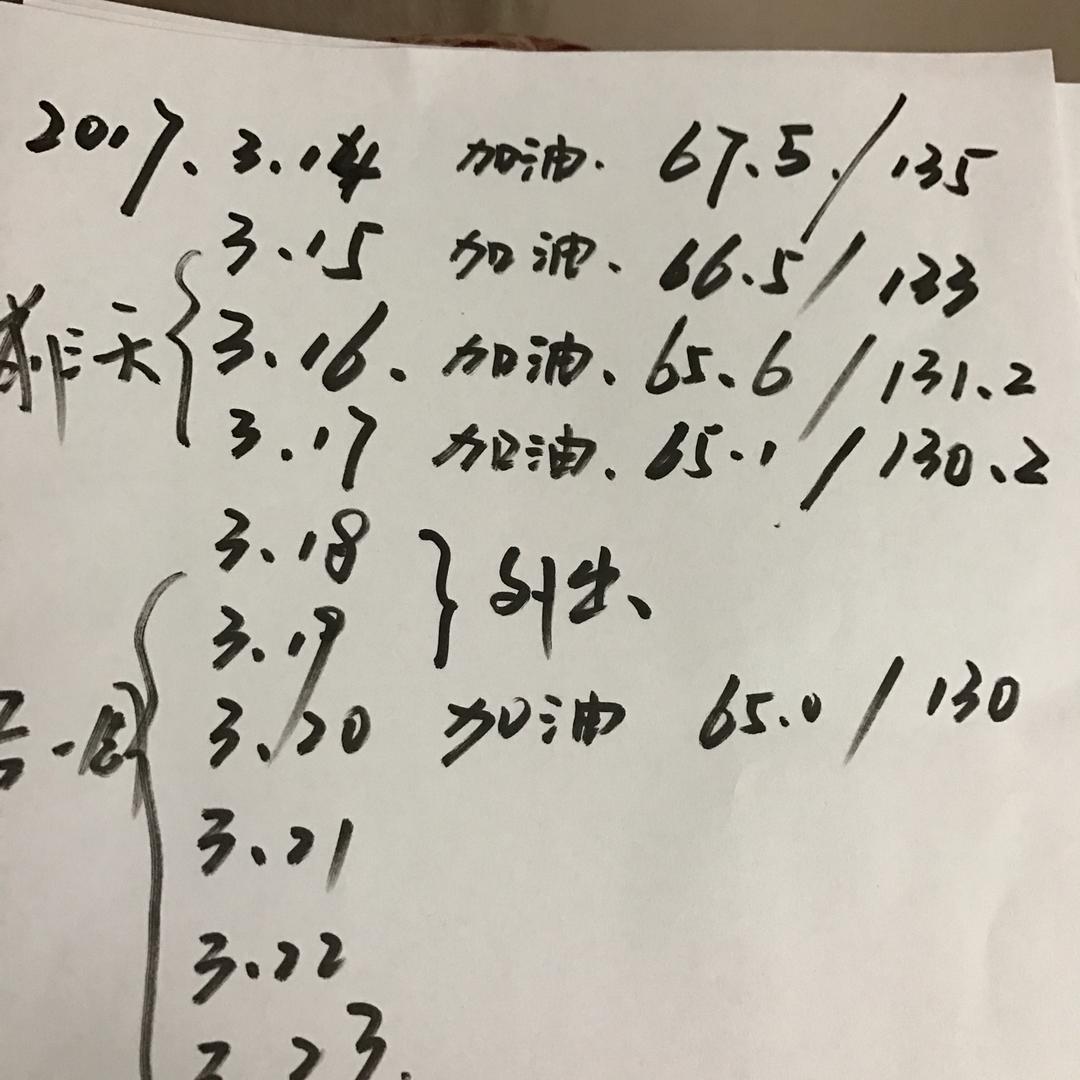 2017.3.14 加油. 67.5./135
3.15 加油. 66.5/133
前三天
3.16. 加油. 65.6/131.2
3.17 加油. 65.1/130.2
3.18
外出、
3.19
3.20 加油 65.0/130
第一周
3.21
3.22
3.23.